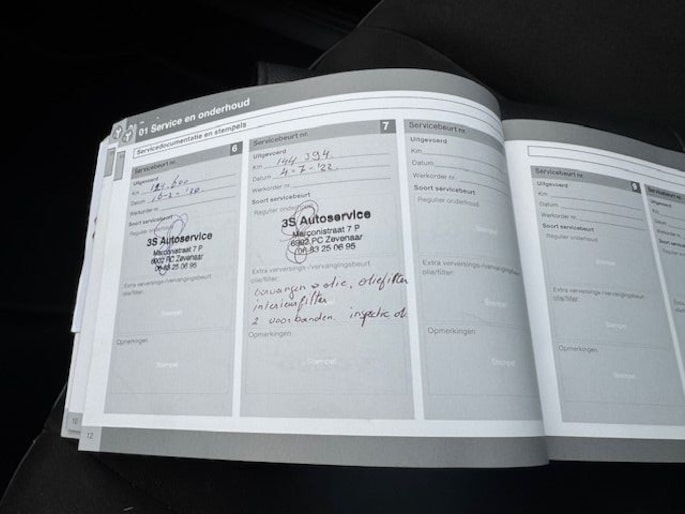 01 Service en onderhoud
Servicedocumentatie en stempels
Servicebeurt nr. 6
Uitgevoerd
Km
Datum 16-2-'20
Werkorder nr
Soort servicebeurt
Regulier onderhoud
3S Autoservice
Marconistraat 7 P
6902 PC Zevenaar
06-83 25 06 95
Extra verversings-/vervangingsbeurt
olie/filter:
Stempel
Opmerkingen
Stempel
Servicebeurt nr. 7
Uitgevoerd
Km 144 394.
Datum 4-7-'22.
Werkorder nr
Soort servicebeurt
Regulier onderhoud
3S Autoservice
Marconistraat 7 P
6902 PC Zevenaar
06-83 25 06 95
Extra verversings-/vervangingsbeurt
olie/filter:
olie, oliefilter
interieurfilter
2 voorbanden. inspectie ok
Opmerkingen:
Stempel
Servicebeurt nr.
Uitgevoerd
Km
Datum
Werkorder nr
Soort servicebeurt
Regulier onderhoud:
Extra verversings-/vervangingsbeurt
olie/filter:
Stempel
Opmerkingen:
Stempel
Servicebeurt nr. 9
Uitgevoerd
Km
Datum
Werkorder nr
Soort servicebeurt
Regulier onderhoud:
Extra verversings-/vervangingsbeurt
olie/filter:
Stempel
Opmerkingen:
Stempel
Servicebeurt
Uitgevoerd
Km
Datum
Werkorder nr
Soort
Regulier
Extra
olie/filter
Opmerkingen
12